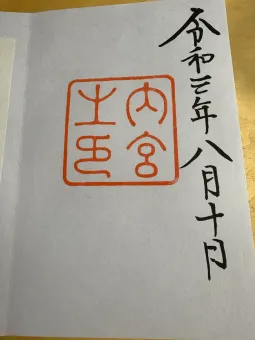 令和三年八月十日
内宮
之印